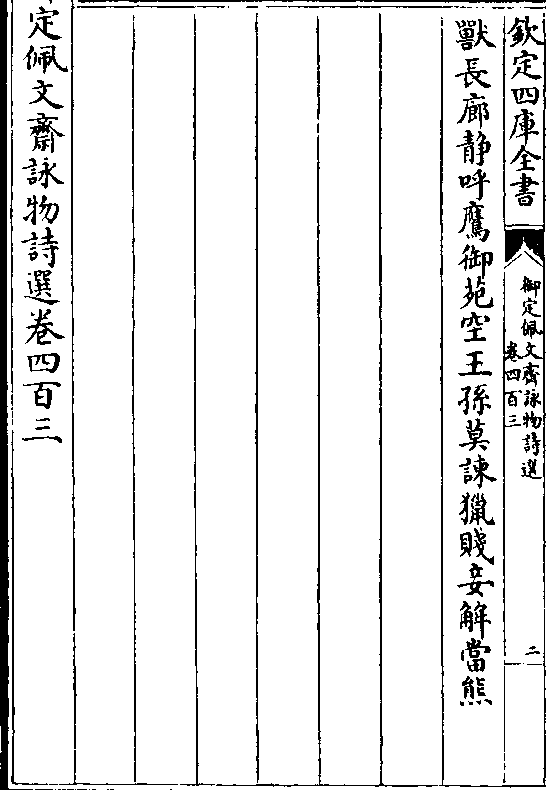 欽定四庫全書
御定佩文齋詠物詩選
卷四百三
二
獸長廊静呼鷹御苑空王孫莫諫獵賤妾解當熊
定佩文齋詠物詩選卷四百三